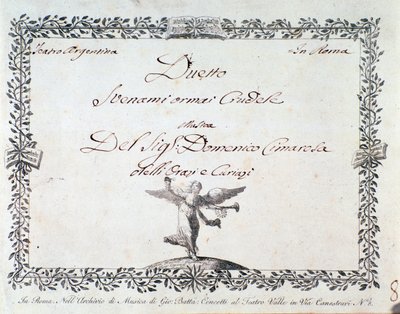 Teatro Argentina In Roma
Duetto
Svenami ormai Crudele
Musica
Del Sig.r Domenico Cimarosa
Orazi e Curiazi
In Roma. Nell'Archivio di Musica di Gio: Batta: Cencetti al Teatro Valle in Via Canestrari N.
8